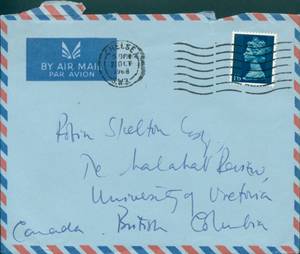 BY AIR MAIL
PAR AVION
CHELSEA
OCT
1968
S.W.3.
Robin Skelton Esq,
The Malahat Review,
University of Victoria
British Columbia
Canada.